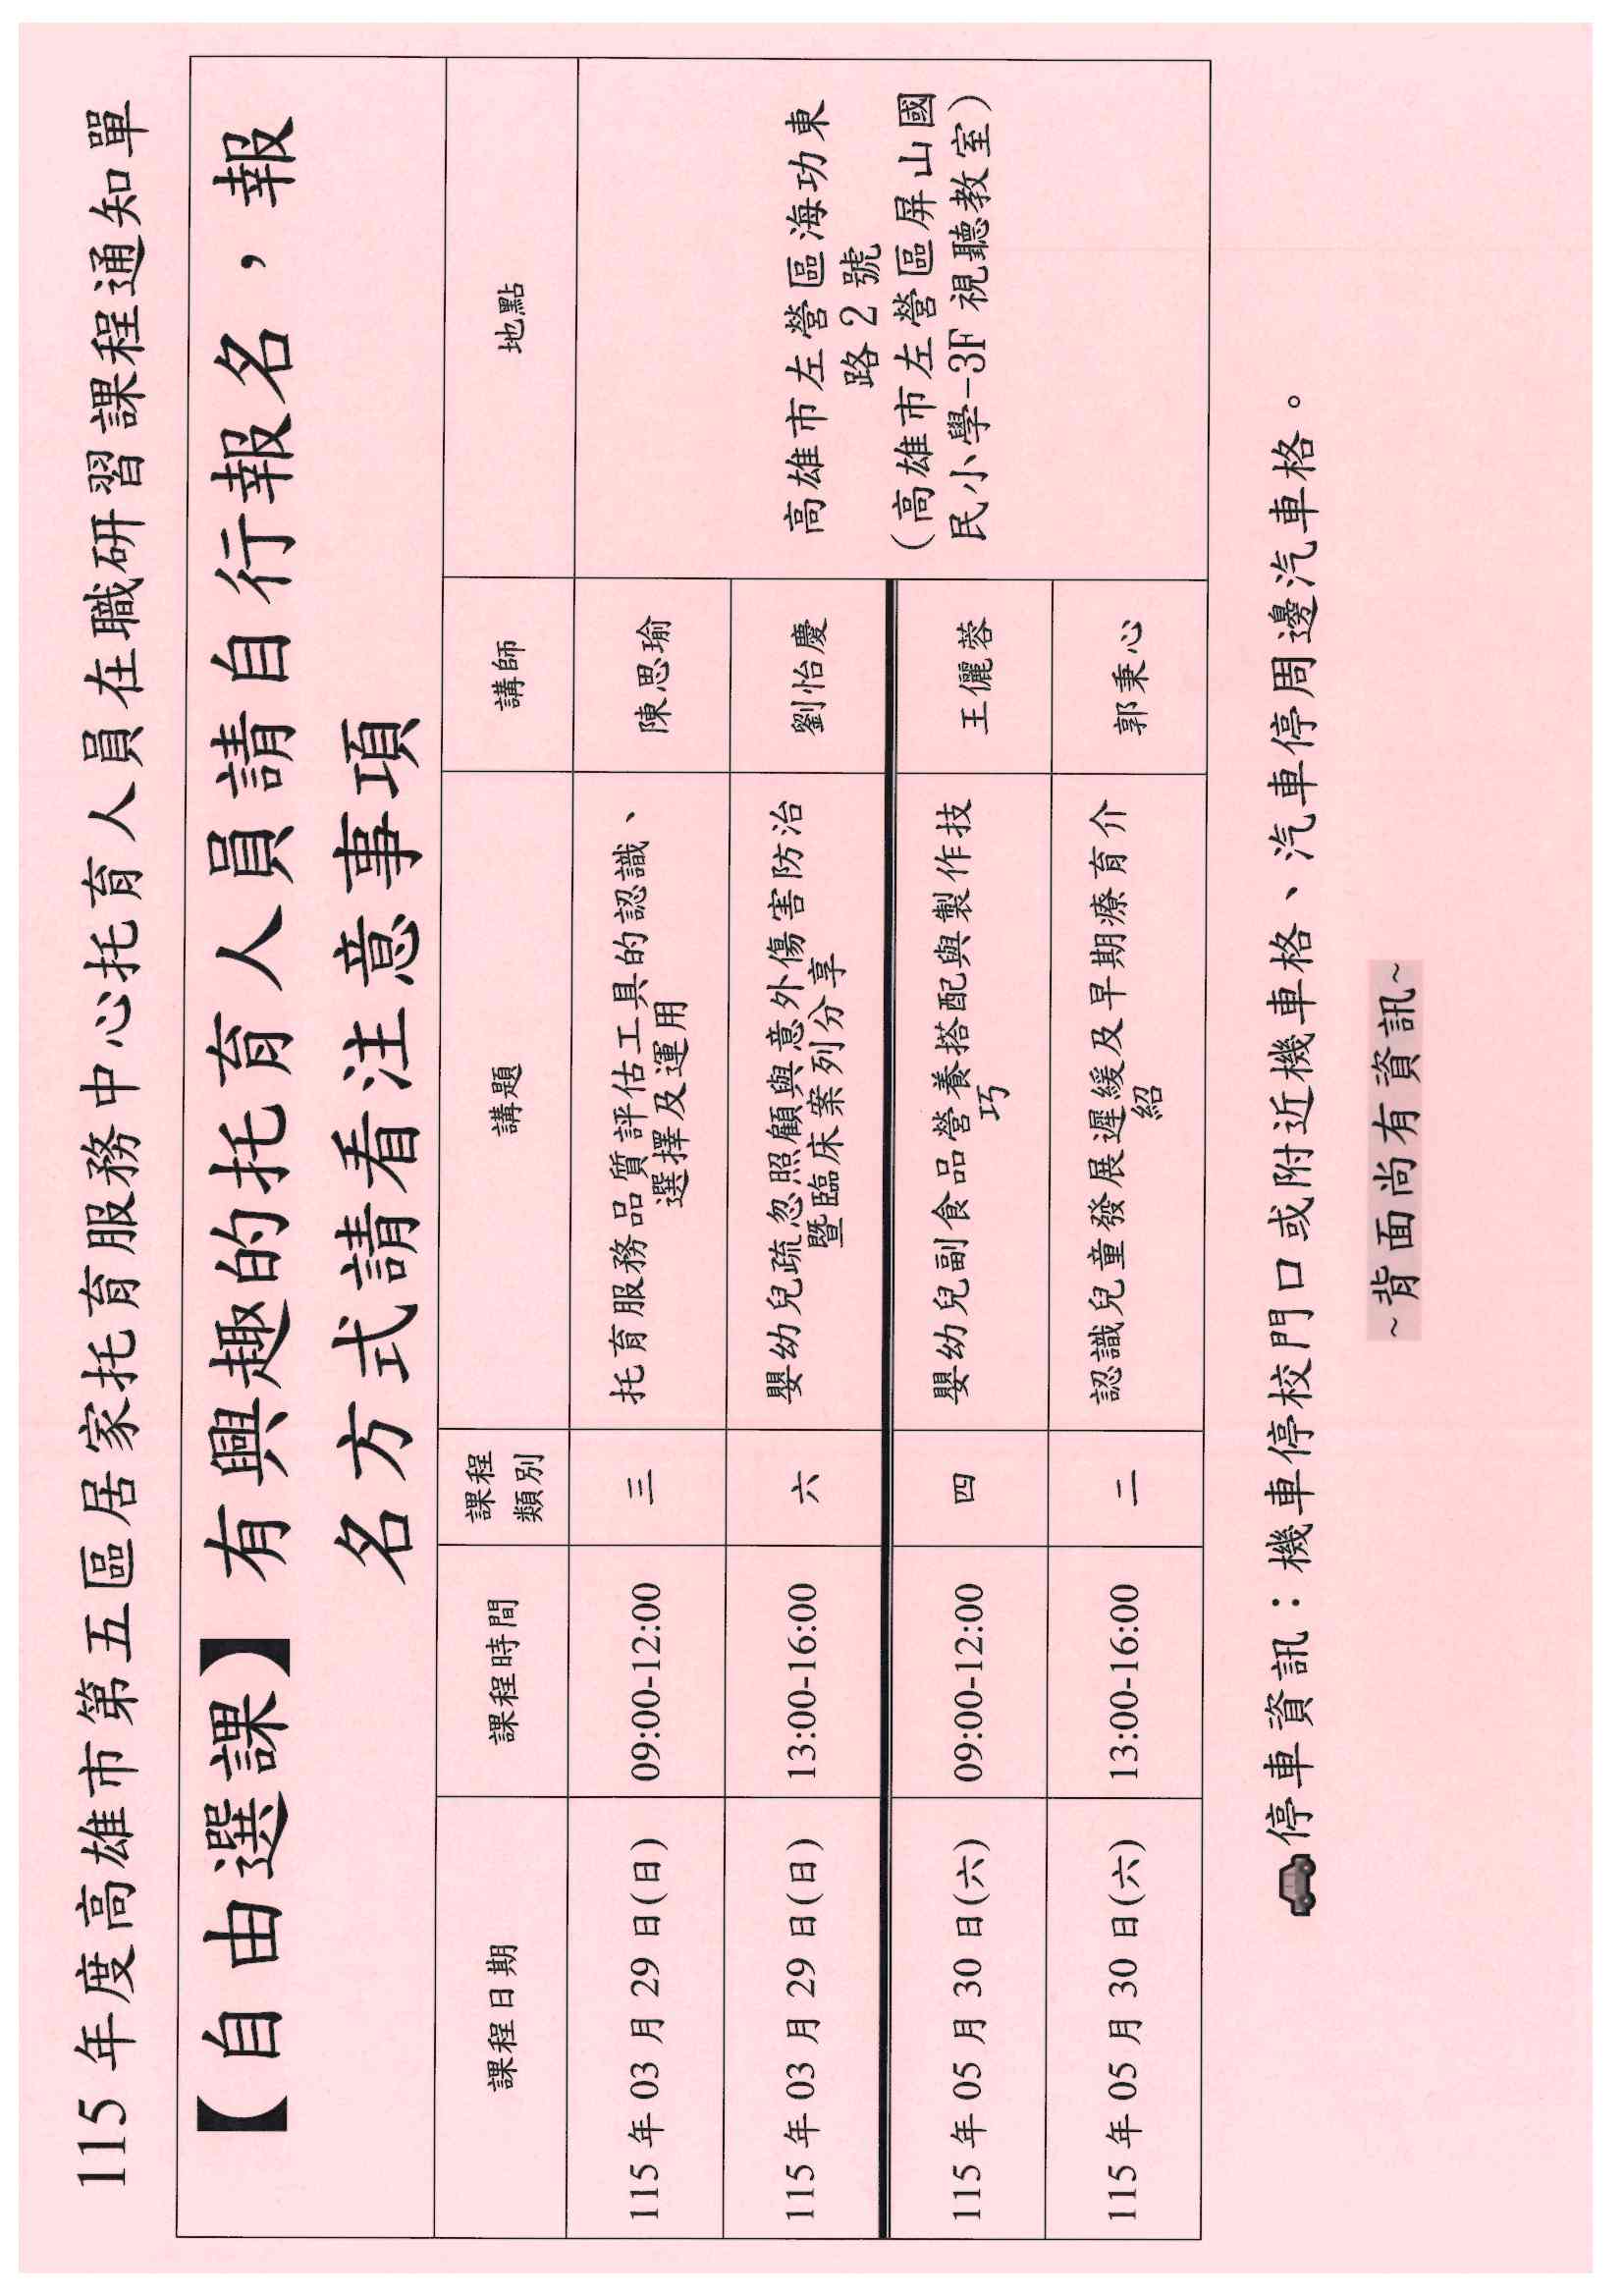 115 年度高雄市第五區居家托育服務中心托育人員在職研習課程通知單
【自由選課】有興趣的托育人員請自行報名，報
名方式請看注意事項
課程日期
課程時間
課程
類別
講題
講師
地點
115 年 03 月 29 日(日)
09:00-12:00
三
托育服務品質評估工具的認識、
選擇及運用
陳思瑜
高雄市左營區海功東
路 2 號
(高雄市左營區屏山國
民小學-3F 視聽教室)
115 年 03 月 29 日(日)
13:00-16:00
六
嬰幼兒疏忽照顧與意外傷害防治
暨臨床案列分享
劉怡慶
115 年 05 月 30 日(六)
09:00-12:00
四
嬰幼兒副食品營養搭配與製作技
巧
王儷蓉
115 年 05 月 30 日(六)
13:00-16:00
二
認識兒童發展遲緩及早期療育介
紹
郭秉心
停車資訊：機車停校門口或附近機車格、汽車停周邊汽車格。
~背面尚有資訊~